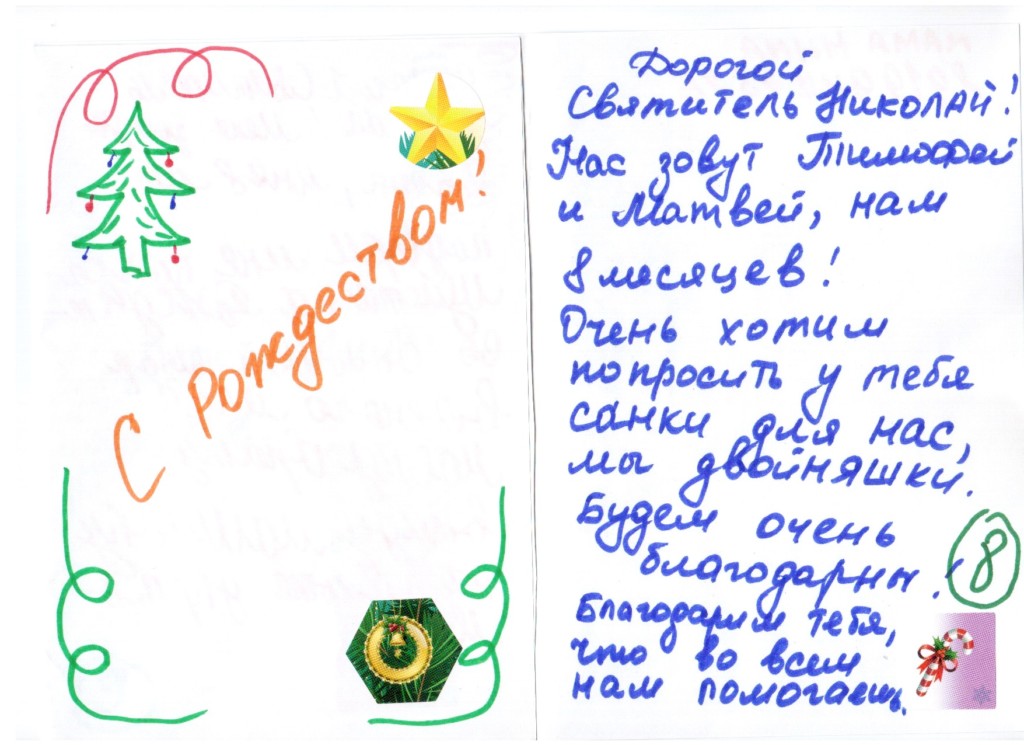 С Рождеством!
Дорогой
Святитель Николай!
Нас зовут Тимофей
и Матвей, нам
8 месяцев!
Очень хотим
попросить у тебя
санки для нас,
мы двойняшки.
Будем очень
благодарны!
8
Благодарим тебя,
что во всем
нам помогаешь.